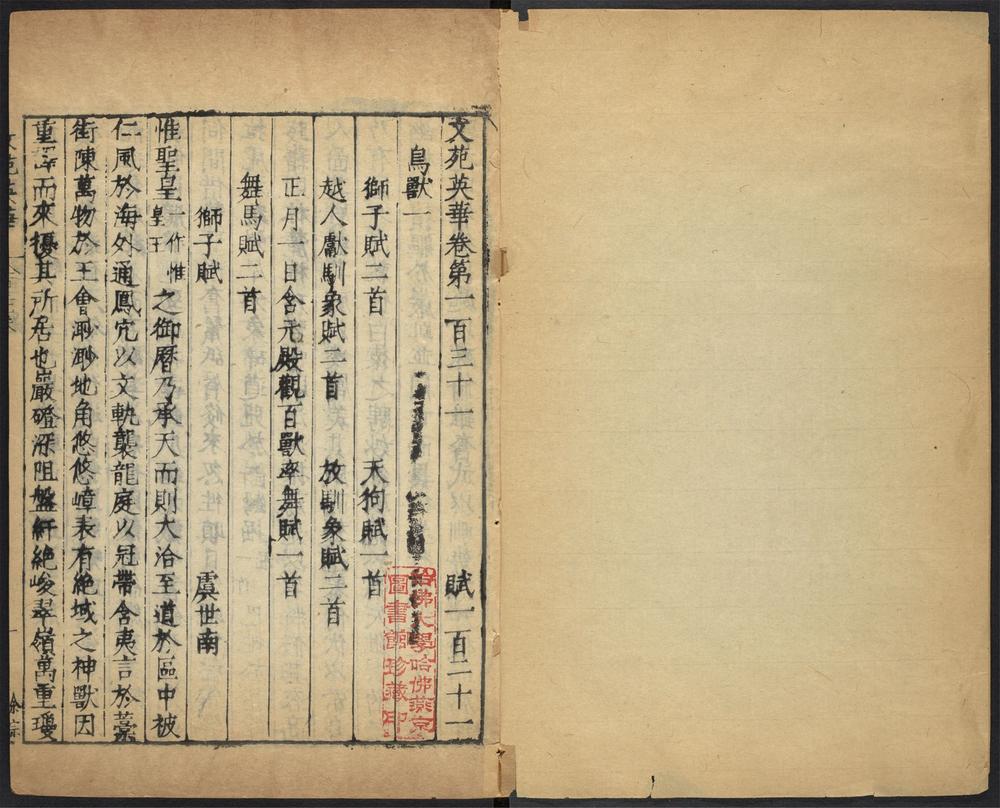 文苑英華卷第一百三十一　賦一百二十一
鳥獸一
獅子賦二首　天狗賦一首
越人獻馴象賦二首　放馴象賦二首
正月一日含元殿觀百獸率舞賦一首
舞馬賦二首
獅子賦　虞世南
惟聖皇一作惟皇王之御曆乃承天而則大洽至道於區中被
仁風於海外通鳳穴以文軌襲龍庭以冠帶含夷言於藁
街陳萬物於王會眇眇地角悠悠嶂表有絶域之神獸因
重譯而來擾其所居也巖磴深阻盤紆絶峻翠嶺萬重瓊
哈佛大學哈佛燕京
圖書館珍藏印